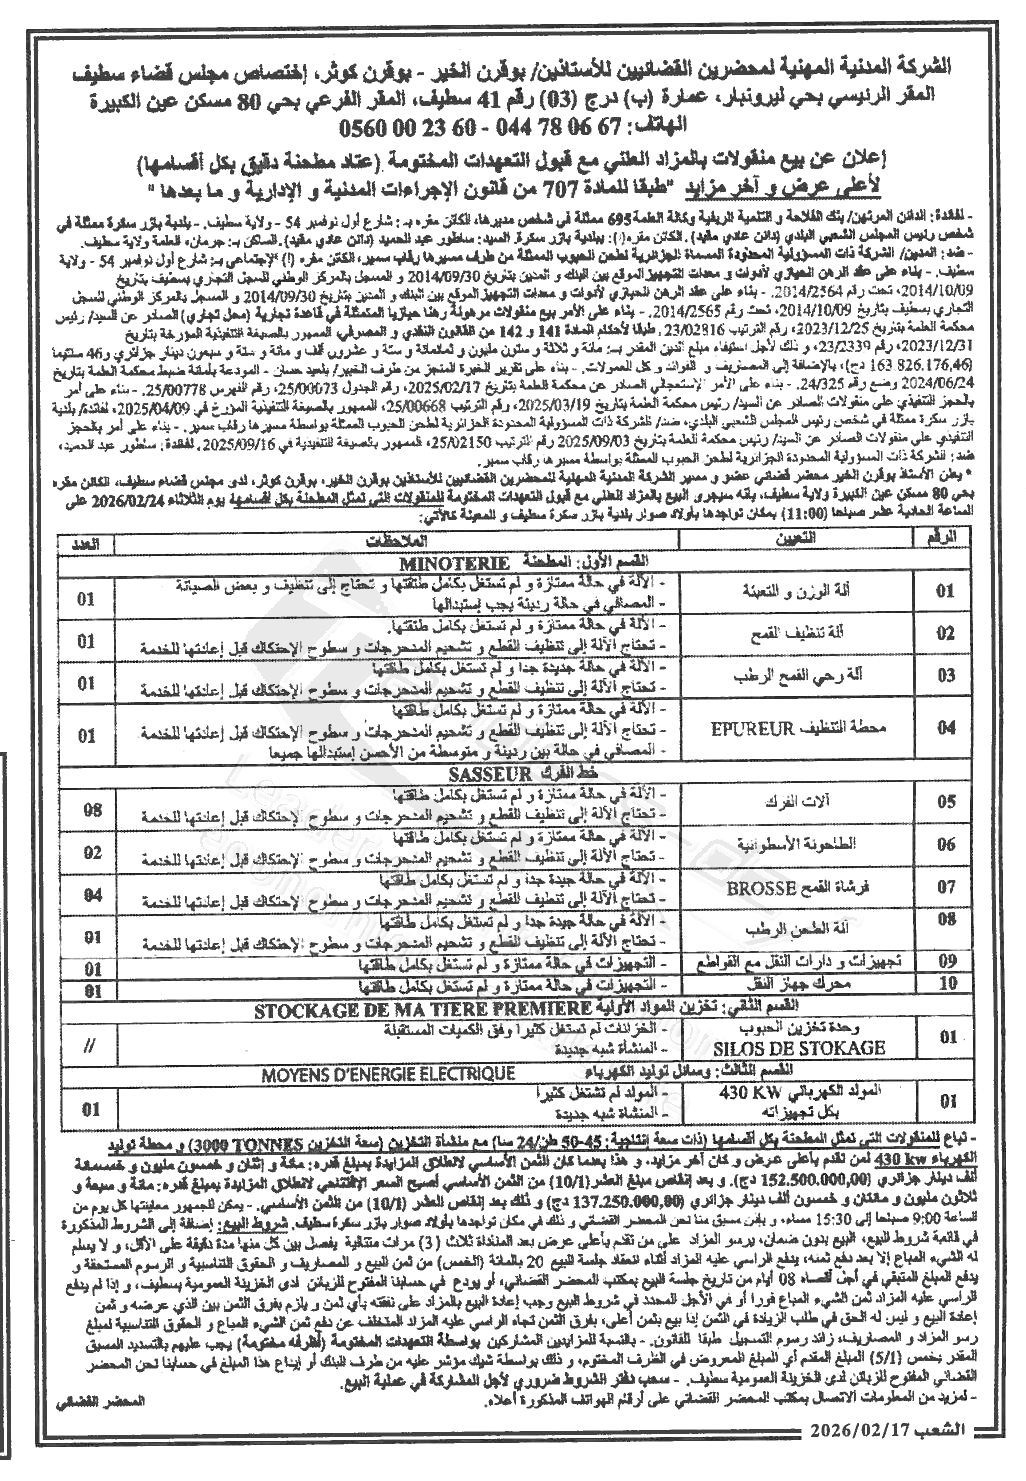 الشركة المدنية المهنية لمحضرين القضائيين للأستاذين/ بوقرن الخير - بوقرن كوثر، إختصاص مجلس قضاء سطيف
المقر الرئيسي بحي ليرونبار، عمارة (ب) درج (03) رقم 41 سطيف، المقر الفرعي بحي 80 مسكن عين الكبيرة
الهاتف: 67 06 78 044 - 60 23 00 0560
إعلان عن بيع منقولات بالمزاد العلني مع قبول التعهدات المختومة (عتاد مطحنة دقيق بكل أقسامها)
لأعلى عرض و آخر مزايد "طبقا للمادة 707 من قانون الإجراءات المدنية و الإدارية و ما بعدها"
- لفائدة: الدائن المرتهن/ بنك الفلاحة و التنمية الريفية وكالة العلمة 695 ممثلة في شخص مديرها، الكائن مقره بـ: شارع أول نوفمبر 54 - ولاية سطيف. - بلدية بازر سكرة ممثلة في
شخص رئيس المجلس الشعبي البلدي (دائن عادي مقيد). الكائن مقره(ا): ببلدية بازر سكرة. السيد: ساطور عبد الحميد (دائن عادي مقيد). الساكن بـ: جرمان، العلمة ولاية سطيف.
- ضد: المدين/ الشركة ذات المسؤولية المحدودة المسماة الجزائرية لطحن الحبوب الممثلة من طرف مسيرها رقاب سمير، الكائن مقره (ا) الإجتماعي بـ: شارع أول نوفمبر 54 - ولاية
سطيف. - بناء على عقد الرهن الحيازي لأدوات و معدات التجهيز الموقع بين البنك و المدين بتاريخ 2014/09/30 و المسجل بالمركز الوطني للسجل التجاري بسطيف بتاريخ
2014/10/09، تحت رقم 2014/2564. - بناء على عقد الرهن الحيازي لأدوات و معدات التجهيز الموقع بين البنك و المدين بتاريخ 2014/09/30 و المسجل بالمركز الوطني للسجل
التجاري بسطيف بتاريخ 2014/10/09، تحت رقم 2014/2565. - بناء على الأمر ببيع منقولات مرهونة رهنا حيازيا المتمثلة في قاعدة تجارية (محل تجاري) الصادر عن السيد/ رئيس
محكمة العلمة بتاريخ 2023/12/25، رقم الترتيب 23/02816. طبقا لأحكام المادة 141 و 142 من القانون النقدي و المصرفي الممهور بالصيغة التنفيذية المؤرخة بتاريخ
2023/12/31، رقم 23/2339، و ذلك لأجل استيفاء مبلغ الدين المقدر بـ: مائة و ثلاثة و ستون مليون و ثمانمائة و ستة و عشرون ألف و مائة و ستة و سبعون دينار جزائري و46 سنتيما
(163 826.176,46 دج)، بالإضافة إلى المصاريف و الفوائد و كل العمولات. - بناء على تقرير الخبرة المنجز من طرف الخبير/ بلعيد حسان - المودعة بأمانة ضبط محكمة العلمة بتاريخ
2024/06/24 وضع رقم 24/325. - بناء على الأمر الإستعجالي الصادر عن محكمة العلمة بتاريخ 2025/02/17، رقم الجدول 25/00073، رقم الفهرس 25/00778. - بناء على أمر
بالحجز التنفيذي على منقولات الصادر عن السيد/ رئيس محكمة العلمة بتاريخ 2025/03/19، رقم الترتيب 25/00668، الممهور بالصيغة التنفيذية المؤرخ في 2025/04/09، لفائدة/ بلدية
بازر سكرة ممثلة في شخص رئيس المجلس الشعبي البلدي، ضد/ الشركة ذات المسؤولية المحدودة الجزائرية لطحن الحبوب الممثلة بواسطة مسيرها رقاب سمير. - بناء على أمر بالحجز
التنفيذي على منقولات الصادر عن السيد/ رئيس محكمة العلمة بتاريخ 2025/09/03 رقم الترتيب 25/02150، الممهور بالصيغة التنفيذية في 2025/09/16. لفائدة: ساطور عبد الحميد،
ضد: الشركة ذات المسؤولية المحدودة الجزائرية لطحن الحبوب الممثلة بواسطة مسيرها رقاب سمير.
* يعلن الأستاذ بوقرن الخير محضر قضائي عضو و مسير الشركة المدنية المهنية للمحضرين القضائيين للأستاذين بوقرن الخير، بوقرن كوثر، لدى مجلس قضاء سطيف، الكائن مقره
بحي 80 مسكن عين الكبيرة ولاية سطيف، بأنه سيجرى البيع بالمزاد العلني مع قبول التعهدات المختومة للمنقولات التي تمثل المطحنة بكل أقسامها يوم الثلاثاء 2026/02/24 على
الساعة الحادية عشر صباحا (11:00) بمكان تواجدها بأولاد صوار بلدية بازر سكرة سطيف و المعينة كالآتي:
الرقم التعيين الملاحظات العدد
القسم الأول: المطحنة MINOTERIE
01 آلة الوزن و التعبئة - الآلة في حالة ممتازة و لم تستغل بكامل طاقتها و تحتاج إلى تنظيف و بعض الصيانة 01
- المصافي في حالة رديئة يجب إستبدالها
02 آلة تنظيف القمح - الآلة في حالة ممتازة و لم تستغل بكامل طاقتها. 01
- تحتاج الآلة إلى تنظيف القطع و تشحيم المدحرجات و سطوح الإحتكاك قبل إعادتها للخدمة
03 آلة رحي القمح الرطب - الآلة في حالة جديدة جدا و لم تستغل بكامل طاقتها 01
- تحتاج الآلة إلى تنظيف القطع و تشحيم المدحرجات و سطوح الإحتكاك قبل إعادتها للخدمة
04 محطة التنظيف EPUREUR - الآلة في حالة ممتازة و لم تستغل بكامل طاقتها 01
- تحتاج الآلة إلى تنظيف القطع و تشحيم المدحرجات و سطوح الإحتكاك قبل إعادتها للخدمة
- المصافي في حالة بين رديئة و متوسطة من الأحسن إستبدالها جميعا
خط الفرك SASSEUR
05 آلات الفرك - الآلة في حالة ممتازة و لم تستغل بكامل طاقتها 08
- تحتاج الآلة إلى تنظيف القطع و تشحيم المدحرجات و سطوح الإحتكاك قبل إعادتها للخدمة
06 الطاحونة الأسطوانية - الآلة في حالة ممتازة و لم تستغل بكامل طاقتها 02
- تحتاج الآلة إلى تنظيف القطع و تشحيم المدحرجات و سطوح الإحتكاك قبل إعادتها للخدمة
07 فرشاة القمح BROSSE - الآلة في حالة جيدة جدا و لم تستغل بكامل طاقتها 04
- تحتاج الآلة إلى تنظيف القطع و تشحيم المدحرجات و سطوح الإحتكاك قبل إعادتها للخدمة
08 آلة الطحن الرطب - الآلة في حالة جيدة جدا و لم تستغل بكامل طاقتها 01
- تحتاج الآلة إلى تنظيف القطع و تشحيم المدحرجات و سطوح الإحتكاك قبل إعادتها للخدمة
09 تجهيزات و دارات النقل مع القواطع - التجهيزات في حالة ممتازة و لم تستغل بكامل طاقتها 01
10 محرك جهاز النقل - التجهيزات في حالة ممتازة و لم تستغل بكامل طاقتها 01
القسم الثاني: تخزين المواد الأولية STOCKAGE DE MA TIERE PREMIERE
01 وحدة تخزين الحبوب - الخزانات لم تستغل كثيرا وفق الكميات المستقبلة //
SILOS DE STOKAGE - المنشأة شبه جديدة
القسم الثالث: وسائل توليد الكهرباء MOYENS D'ENERGIE ELECTRIQUE
01 المولد الكهربائي 430 KW - المولد لم تشتغل كثيرا 01
بكل تجهيزاته - المنشأة شبه جديدة
- تباع للمنقولات التي تمثل المطحنة بكل أقسامها (ذات سعة إنتاجية: 45-50 طن/24 سا) مع منشأة التخزين (سعة التخزين 3000 TONNES) و محطة توليد
الكهرباء 430 kw لمن تقدم بأعلى عرض و كان آخر مزايد، و هذا بعدما كان الثمن الأساسي لانطلاق المزايدة بمبلغ قدره: مائة و إثنان و خمسون مليون و خمسمائة
ألف دينار جزائري (152.500.000,00 دج). و بعد إنقاص مبلغ العشر (10/1) من الثمن الأساسي أصبح السعر الإفتتاحي لانطلاق المزايدة بمبلغ قدره: مائة و سبعة و
ثلاثون مليون و مائتان و خمسون ألف دينار جزائري (137.250.000,00 دج) و ذلك بعد إنقاص العشر (10/1) من الثمن الأساسي. - يمكن للجمهور معاينتها كل يوم من
الساعة 9:00 صباحا إلى 15:30 مساء، و بإذن مسبق منا نحن المحضر القضائي و ذلك في مكان تواجدها بأولاد صوار بازر سكرة سطيف. شروط البيع: إضافة إلى الشروط المذكورة
في قائمة شروط البيع، البيع بدون ضمان، يرسو المزاد على من تقدم بأعلى عرض بعد المناداة ثلاث (3) مرات متتالية يفصل بين كل منها مدة دقيقة على الأقل، و لا يسلم
له الشيء المباع إلا بعد دفع ثمنه، يدفع الراسي عليه المزاد أثناء انعقاد جلسة البيع 20 بالمائة (الخمس) من ثمن البيع و المصاريف و الحقوق التناسبية و الرسوم المستحقة و
يدفع المبلغ المتبقي في أجل أقصاه 08 أيام من تاريخ جلسة البيع بمكتب المحضر القضائي، أو يودع في حسابنا المفتوح للزبائن لدى الخزينة العمومية بسطيف، و إذا لم يدفع
الراسي عليه المزاد ثمن الشيء المباع فورا أو في الأجل المحدد في شروط البيع وجب إعادة البيع بالمزاد على نفقته بأي ثمن و يلزم بفرق الثمن بين الذي عرضه و ثمن
إعادة البيع و ليس له الحق في طلب الزيادة في الثمن إذا بيع بثمن أعلى، بفرق الثمن تجاه الراسي عليه المزاد المتخلف عن دفع ثمن الشيء المباع و الحقوق التناسبية لمبلغ
رسو المزاد و المصاريف، زائد رسوم التسجيل طبقا للقانون. - بالنسبة للمزايدين المشاركين بواسطة التعهدات المختومة (أظرفة مختومة) يجب عليهم بالتسديد المسبق
المقدر بخمس (5/1) المبلغ المقدم أي المبلغ المعروض في الظرف المختوم، و ذلك بواسطة شيك مؤشر عليه من طرف البنك أو إيداع هذا المبلغ في حسابنا نحن المحضر
القضائي المفتوح للزبائن لدى الخزينة العمومية سطيف. - سحب دفتر الشروط ضروري لأجل المشاركة في عملية البيع.
- لمزيد من المعلومات الاتصال بمكتب المحضر القضائي على أرقام الهواتف المذكورة أعلاه. المحضر القضائي
الشعب 2026/02/17